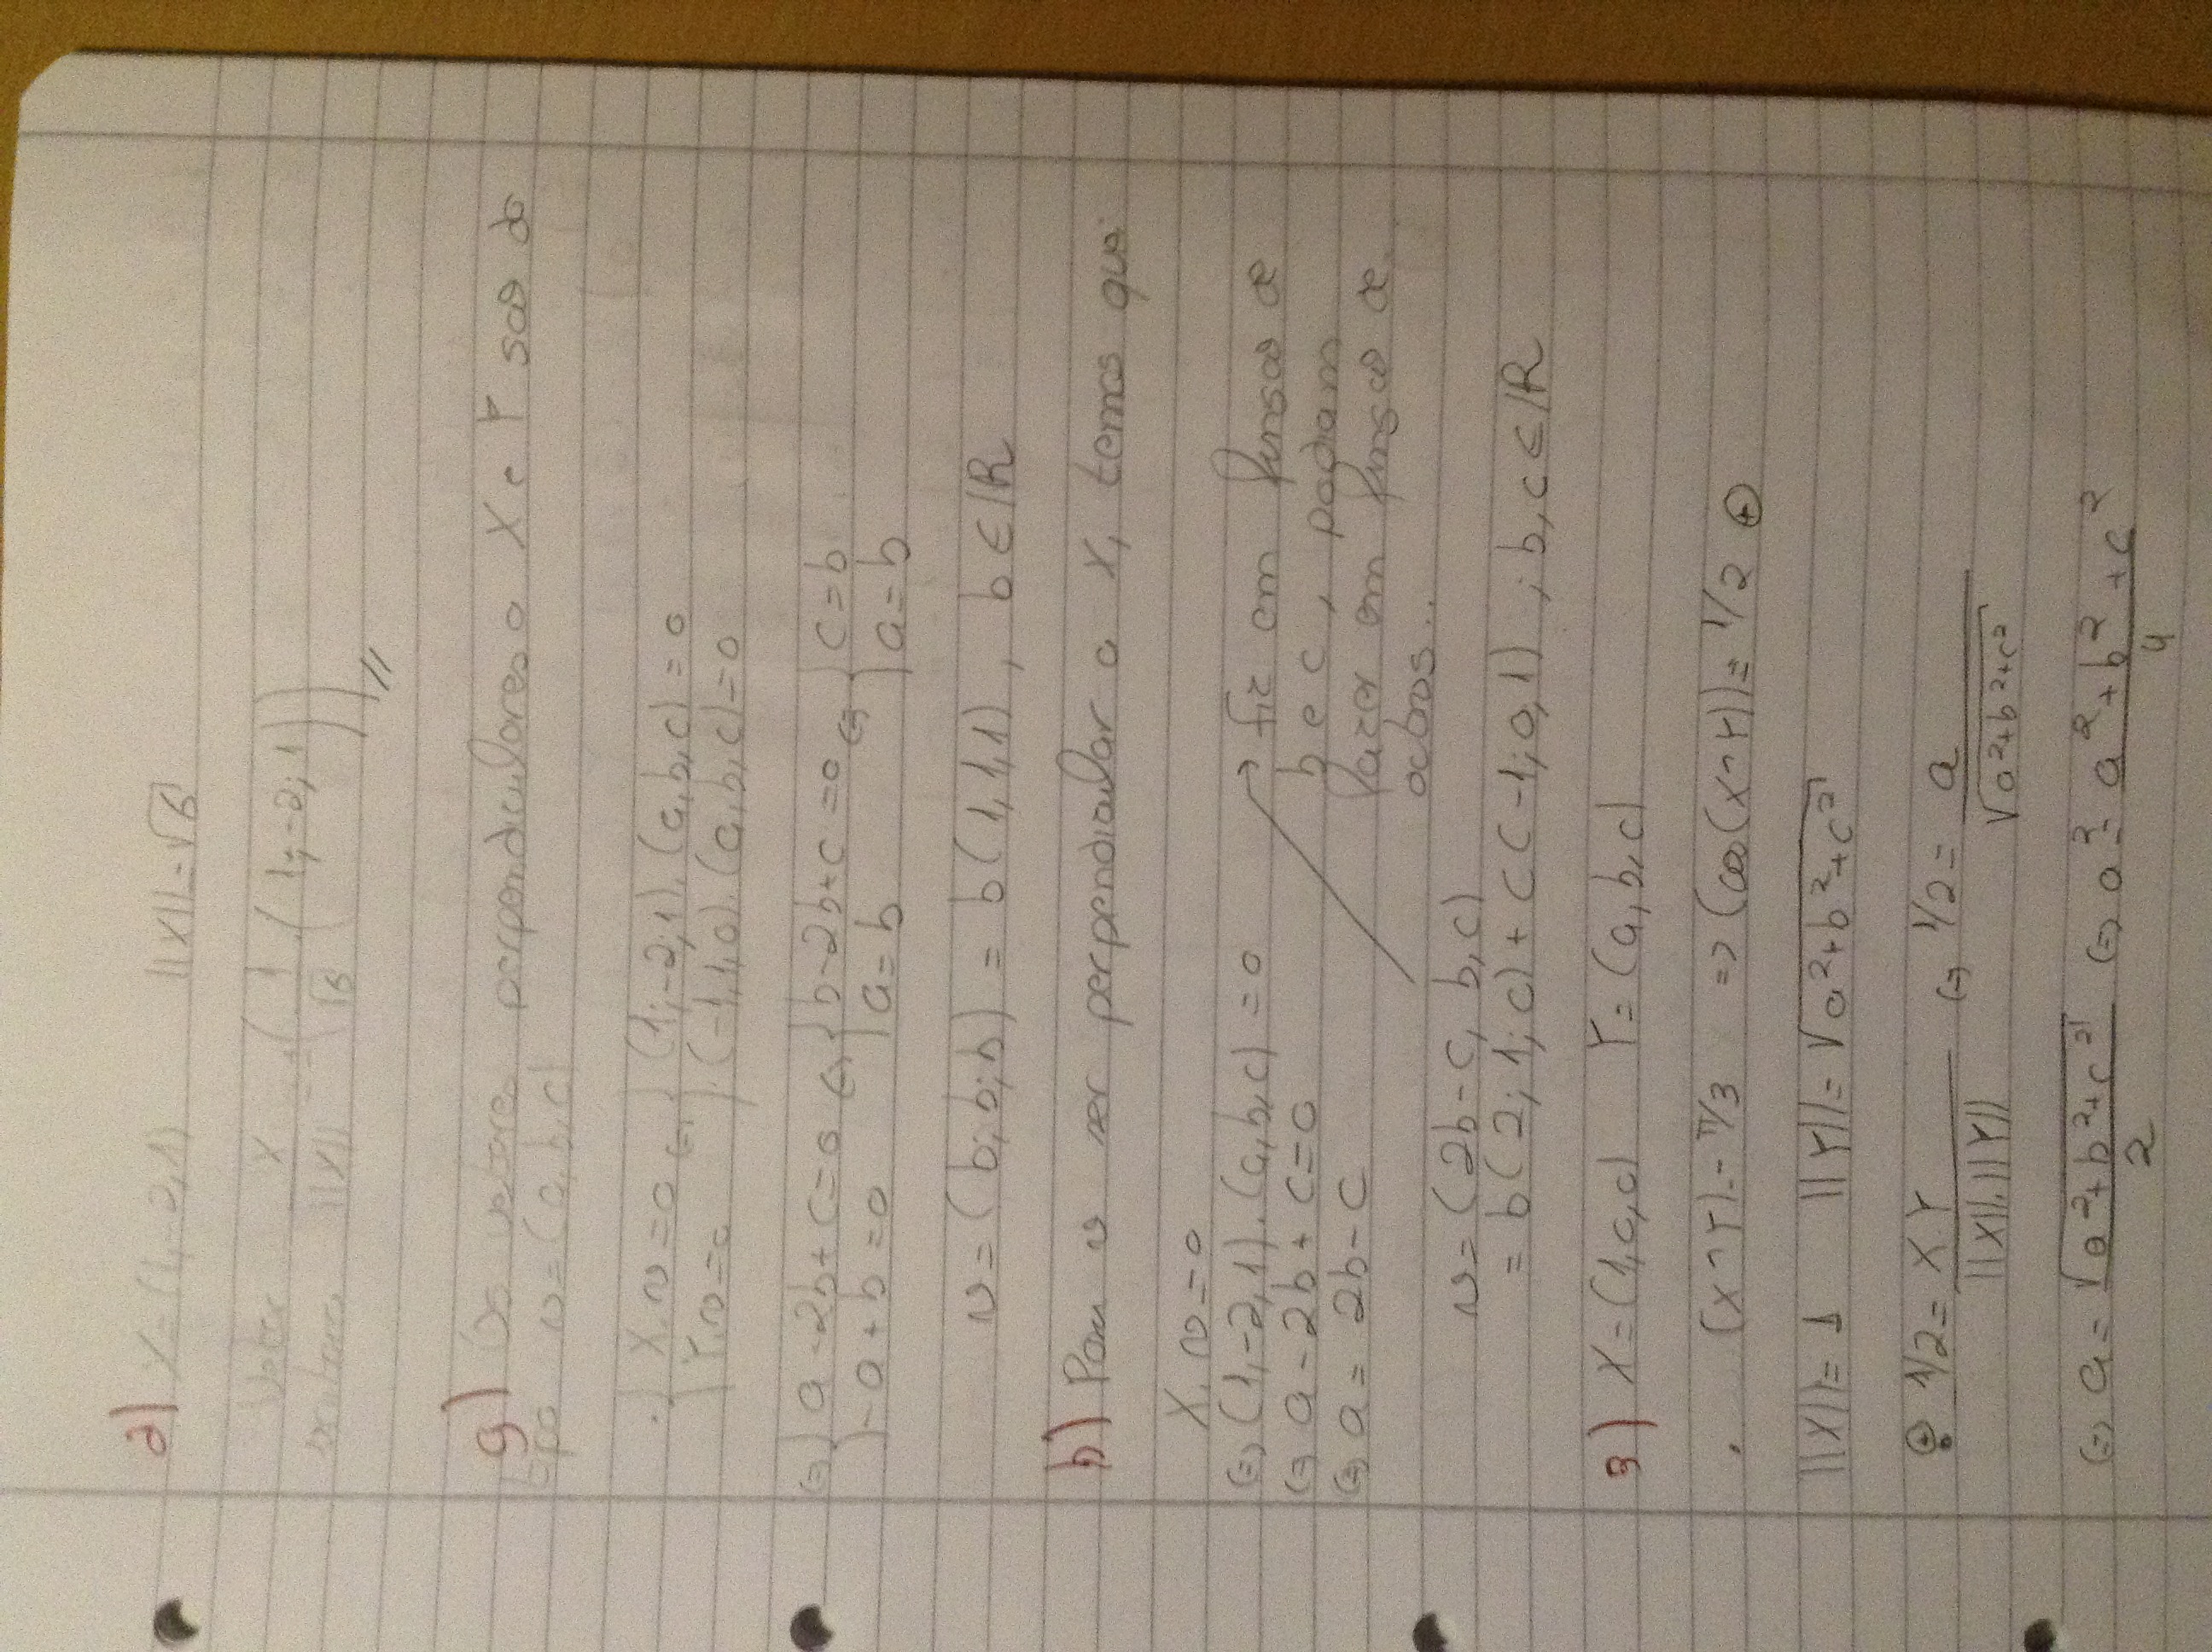 a) X=(1,-2,1) ||X||=√6
Vetor X/||X|| = (1/√6 · (1;-2;1)) //
g) Os vetores perpendiculares a X e Y sao do
tipo v=(a,b,c)
{ X.v=0 (=) { (1;-2;1).(a,b,c)=0
{ Y.v=0 { (-1,1,0).(a,b,c)=0
(=) { a-2b+c=0 (=) { b-2b+c=0 (=) { c=b
{ -a+b=0 { a=b { a=b
v=(b;b;b) = b(1,1,1), b∈ℝ
h) Para v ser perpendicular a X, temos que:
X.v=0
(=) (1,-2,1).(a,b,c)=0 → fiz em funsao de
(=) a-2b+c=0 b e c, podiam
(=) a=2b-c fazer em funsao de
outros...
v=(2b-c, b,c)
= b(2;1;0)+c(-1;0,1) ; b,c∈ℝ
3) X=(1,0,0) Y=(a,b,c)
. (X^Y)=π/3 => (cos(X^Y))=1/2 ⊕
||X||=1 ||Y||=√(a²+b²+c²)
⊕: 1/2 = X.Y/(||X||.||Y||) (=) 1/2 = a/√(a²+b²+c²)
(=) a = √(a²+b²+c²)/2 (=) a² = (a²+b²+c²)/4